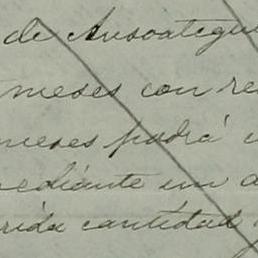 de Ansoategui
meses con re
meses podrá
mediante un a
rida cantidad